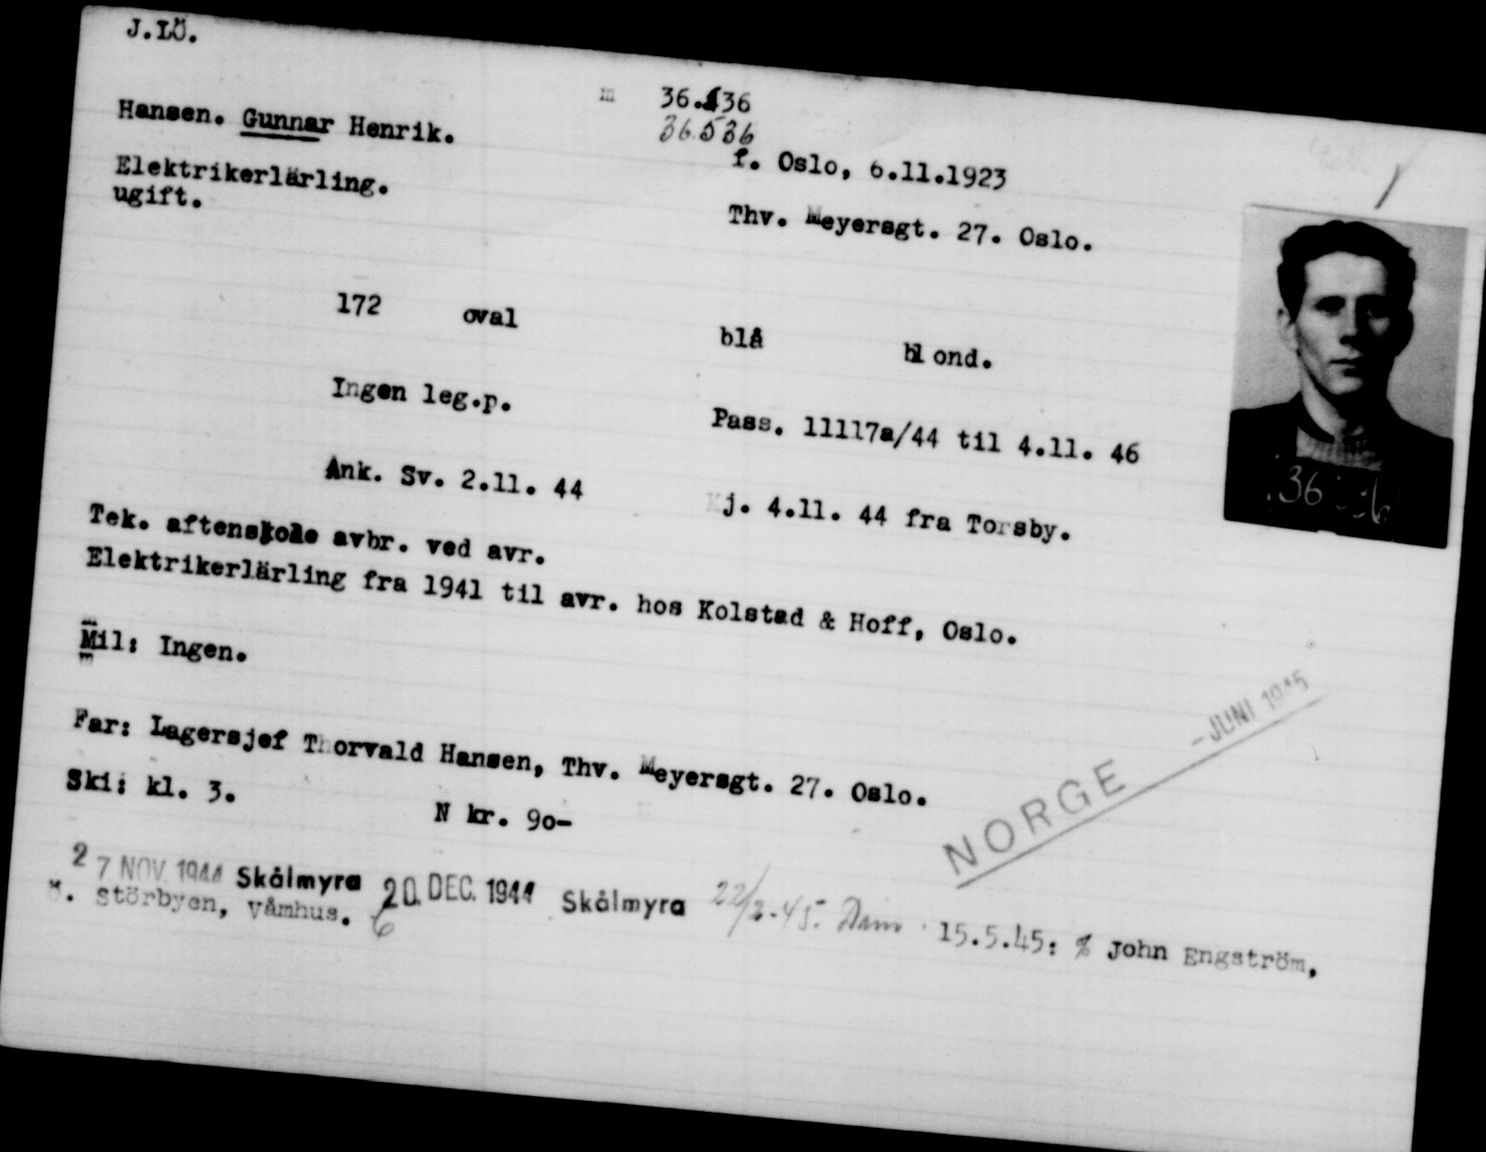 J.LÖ.
m 36.536
36.536
Hansen. Gunnar Henrik.
f. Oslo, 6.11.1923
Elektrikerlärling.
ugift.
Thv. Meyersgt. 27. Oslo.
172 oval blå blond.
Ingen leg.p. Pass. 11117a/44 til 4.11. 46
Ank. Sv. 2.11. 44 Kj. 4.11. 44 fra Torsby.
Tek. aftenskole avbr. ved avr.
Elektrikerlärling fra 1941 til avr. hos Kolstad & Hoff, Oslo.
Mil: Ingen.
Far: Lagersjef Thorvald Hansen, Thv. Meyersgt. 27. Oslo.
Ski: kl. 3.
N kr. 90-
NORGE - JUNI 1945
27 NOV. 1944 Skålmyra 20. DEC. 1944 Skålmyra 22/2-45. 15.5.45: % John Engström,
störbyen, Våmhus. 6
36